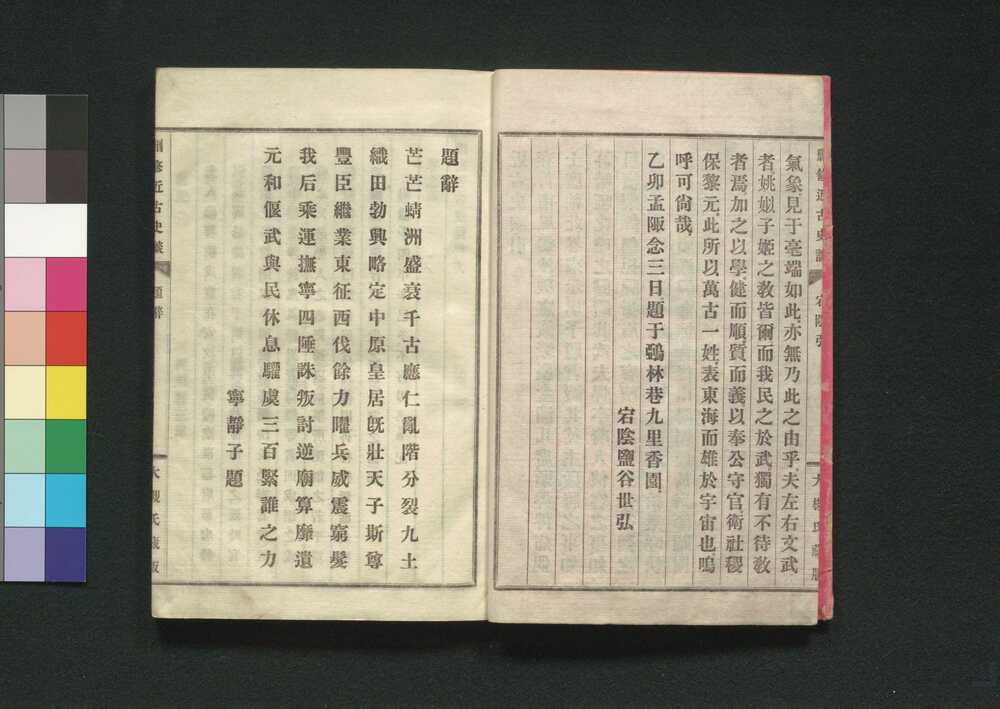 氣象、見于毫端如此、亦無乃此之由乎、夫左右文武
者、姚姒子姬之敎皆爾、而我民之於武、獨有不待敎
者焉、加之以學、健而順、質而義、以奉公守官、衛社稷
保黎元、此所以萬古一姓、表東海而雄於宇宙也、嗚
呼可尙哉、
乙卯孟陬念三日題于鵶林巷九里香園、
宕陰鹽谷世弘
題辭
芒芒蜻洲盛衰千古應仁亂階分裂九土
織田勃興略定中原皇居旣壯天子斯尊
豐臣繼業東征西伐餘力曜兵威震窮髮
我后乘運撫寧四陲誅叛討逆廟算靡遺
元和偃武與民休息驩虞三百緊誰之力
寧靜子題
刪修近古史談
題辭
大槻氏藏版